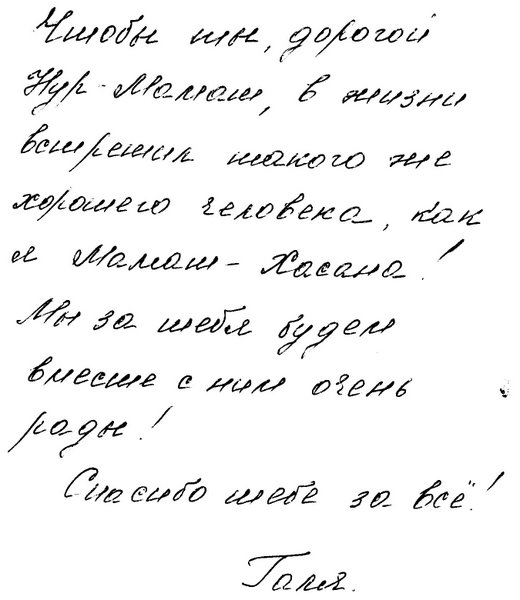 Чтобы ты, дорогой
Нур-Мамат, в жизни
встретил такого же
хорошего человека, как
я Мамат-Хасана!
Мы за тебя будем
вместе с ним очень
рады!
Спасибо тебе за всё!
Галя.